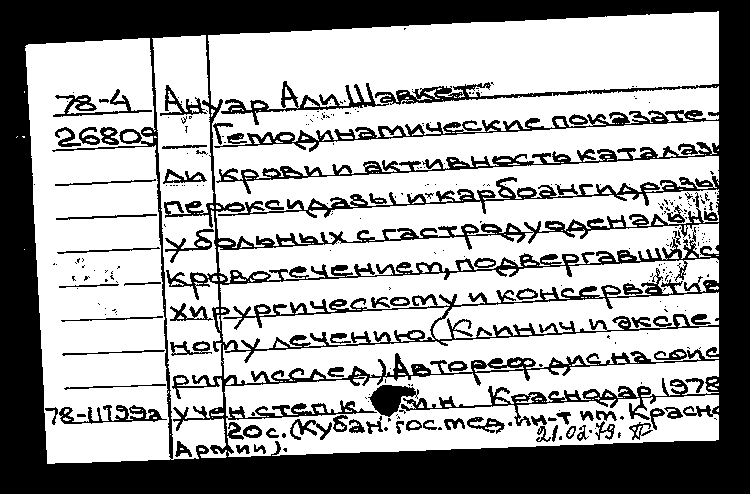 78-4 Ануар Али Шавкет.
26809 Гемодинамические показате-
ли крови и активность каталазы
пероксидазы и карбоангидразы
у больных с гастродуоденальны
кровотечением, подвергавшихс
хирургическому и консерватив
ному лечению. (Клинич. и экспе-
рим. исслед.) Автореф. дис. на соис
78-11799а учен. степ. к. м.н. Краснодар, 1978
20 с. (Кубан. гос. мед. ин-т им. Красно
Армии).
21.02.79.